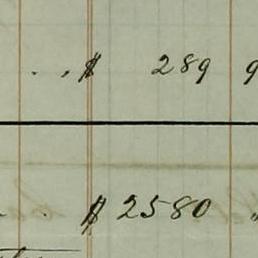 $ 289 9
$ 2580 "